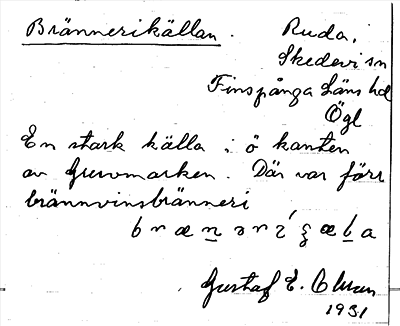 Brännerikällan.
Ruda,
Skedevi sn
Finspånga Läns hd
Ögl
En stark källa i ö kanten
av Gruvmarken. Där var förr
brännvinsbränneri
Gustaf E. Olsson
1931